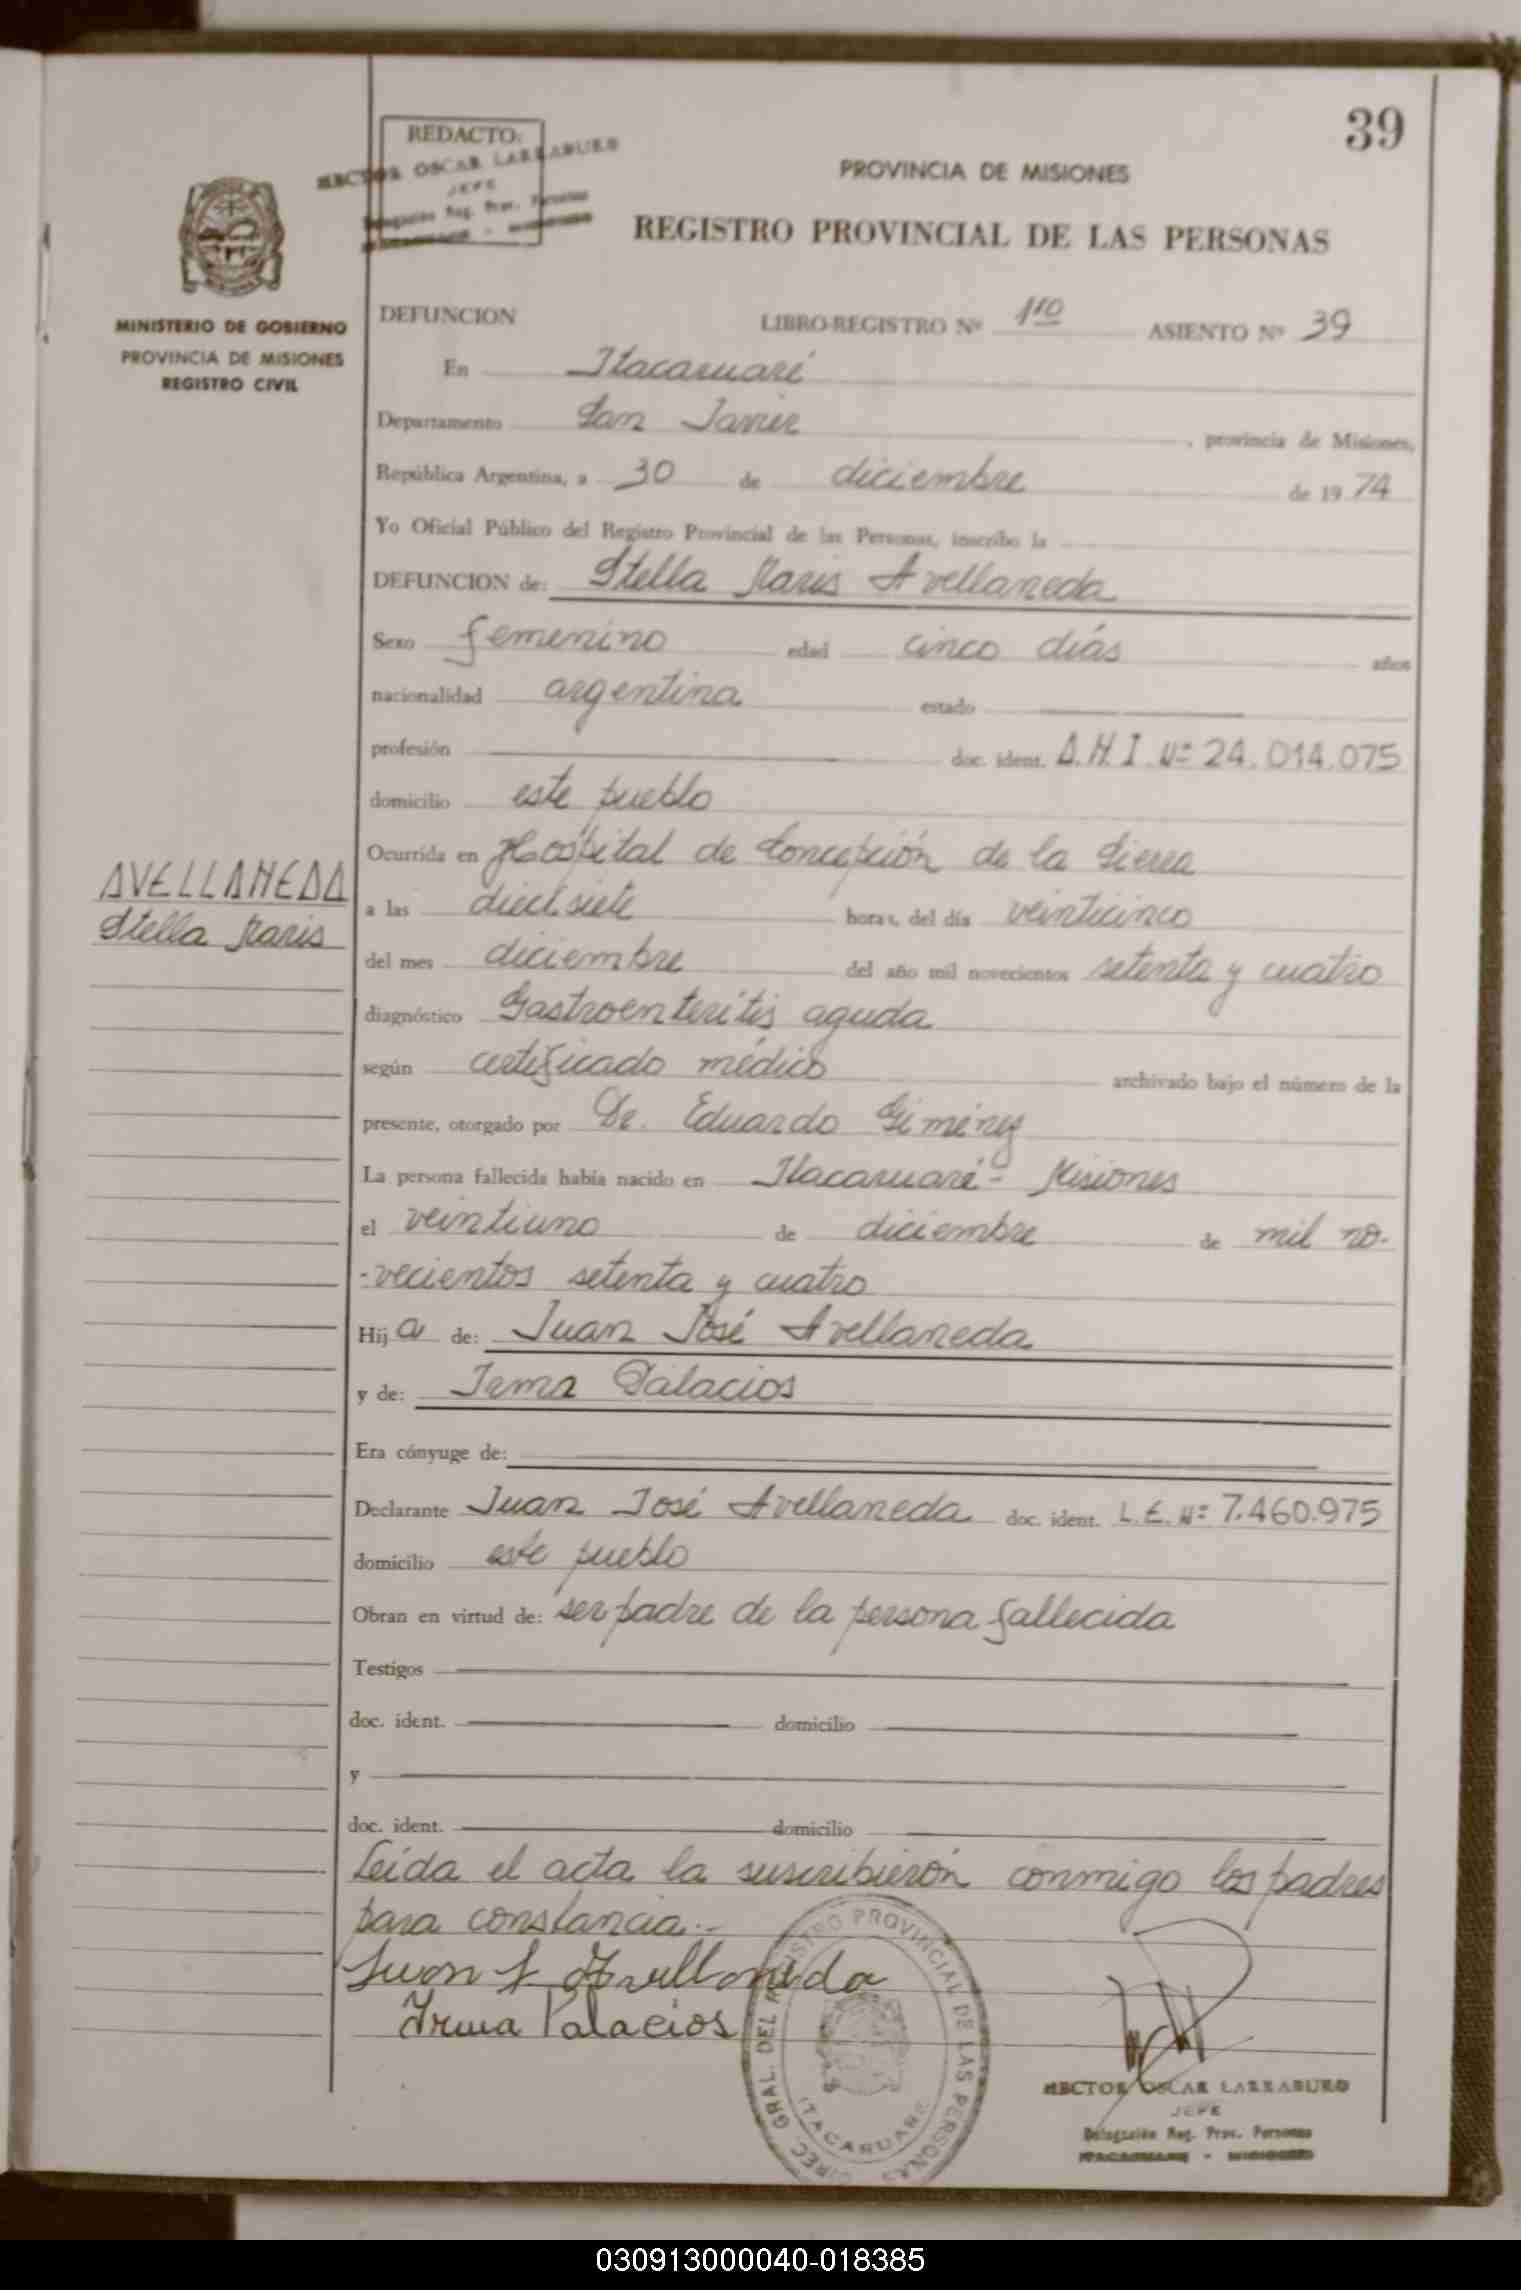 39
REDACTO:
HECTOR OSCAR LARRABURO
JEFE
Delegación Reg. Prov. Personas
PROVINCIA DE MISIONES
REGISTRO PROVINCIAL DE LAS PERSONAS
MINISTERIO DE GOBIERNO
PROVINCIA DE MISIONES
REGISTRO CIVIL
DEFUNCION LIBRO-REGISTRO Nº 1ro ASIENTO Nº 39
En Itacaruaré
Departamento San Javier, provincia de Misiones,
República Argentina, a 30 de diciembre de 1974
Yo Oficial Público del Registro Provincial de las Personas, inscribo la
DEFUNCION de: Stella Maris Avellaneda
Sexo femenino edad cinco diás años
nacionalidad argentina estado
profesión doc. ident. D.N.I. Nº 24.014.075
domicilio este pueblo
AVELLANEDA
Stella Maris
Ocurrida en Hospital de Concepción de la Sierra
a las diecisiete horas, del día veinticinco
del mes diciembre del año mil novecientos setenta y cuatro
diagnóstico Gastroenteritis aguda
según certificado médico archivado bajo el número de la
presente, otorgado por Dr. Eduardo Giménez
La persona fallecida había nacido en Itacaruaré - Misiones
el veintiuno de diciembre de mil no-
-vecientos setenta y cuatro
Hija de: Juan José Avellaneda
y de: Irma Palacios
Era cónyuge de:
Declarante Juan José Avellaneda doc. ident. L.E. Nº 7.460.975
domicilio este pueblo
Obran en virtud de: ser padre de la persona fallecida
Testigos
doc. ident. domicilio
y
doc. ident. domicilio
Leída el acta la suscribierón conmigo los padres
para constancia.-
Juan J. Avellaneda
Irma Palacios
DIREC. GRAL. DEL REGISTRO PROVINCIAL DE LAS PERSONAS
ITACARUARE
HECTOR OSCAR LARRABURO
JEFE
Delegación Reg. Prov. Personas
ITACARUARE - MISIONES
030913000040-018385